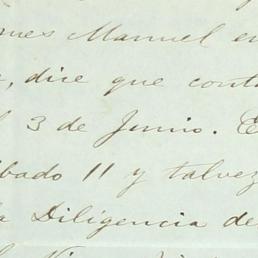 mes Manuel en
, dice que conta
l 3 de Junio. E
bado 11 y talvez
a Diligencia de